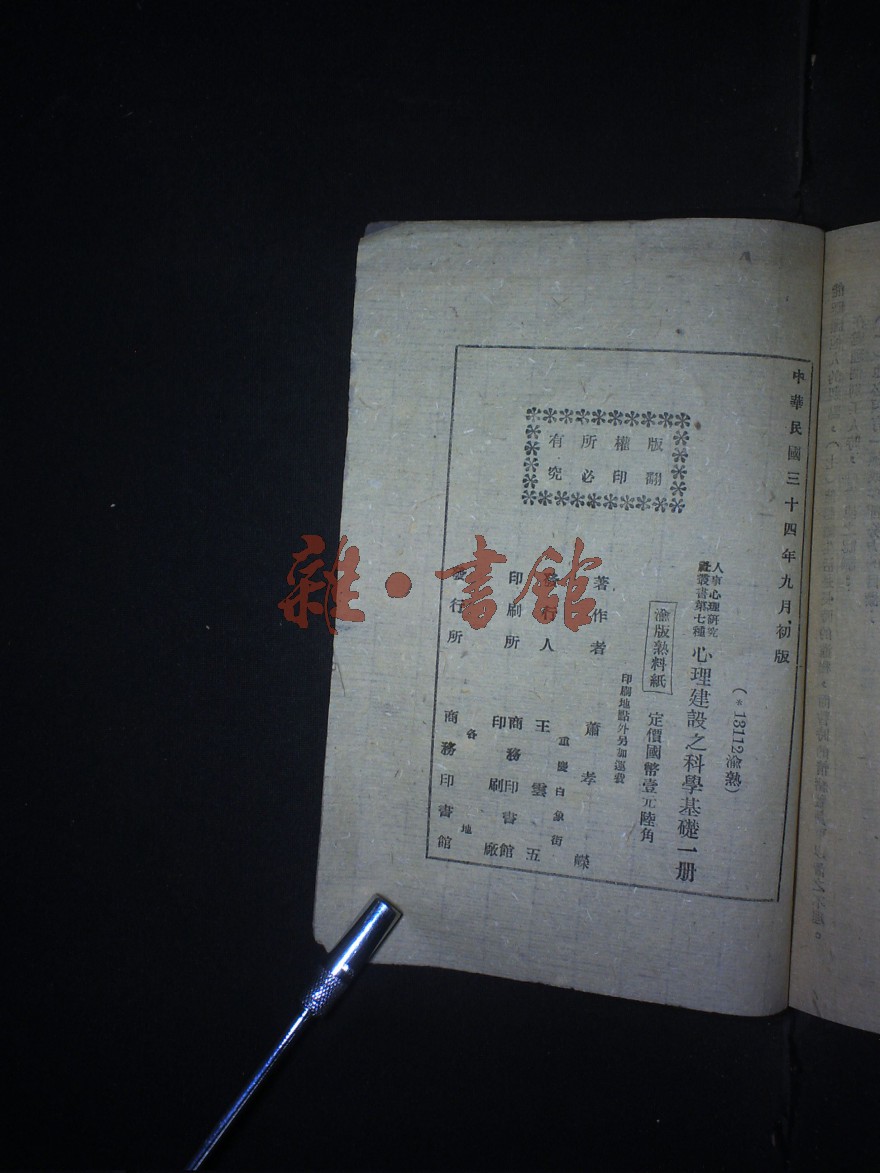 中華民國三十四年九月初版
(*13112渝熱)
人事心理研究
社叢書第七種
心理建設之科學基礎一册
渝版熱料紙
定價國幣壹元陸角
印刷地點外另加運費
著作者 蕭孝嶸
重慶白象街
發行人 王雲五
印刷所 商務印書館
印刷廠
各地
發行所 商務印書館
版權所有
翻印必究
雜·書館